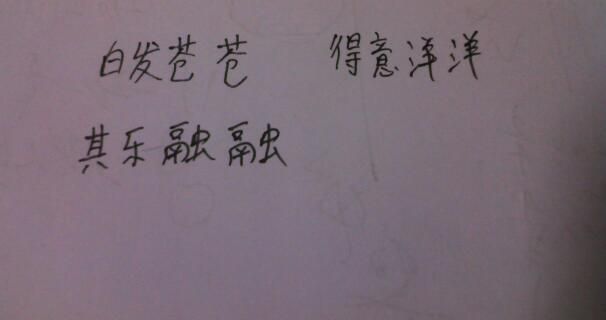 白发苍苍 得意洋洋
其乐融融